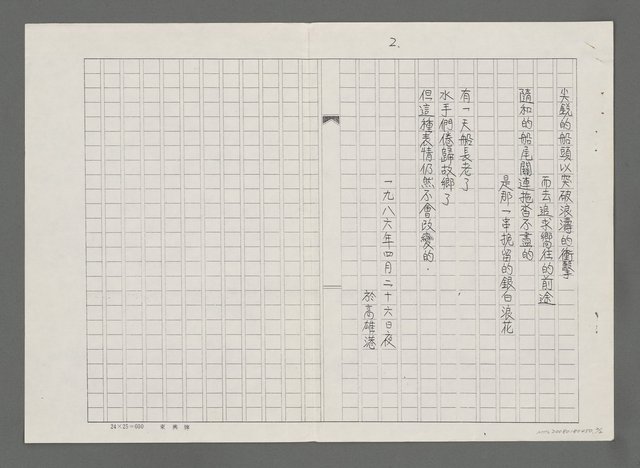 2.
尖銳的船頭以突破浪濤的衝擊
而去追求嚮往的前途
隨和的船尾關連拖沓不盡的
是那一串挽留的銀白浪花
有一天船長老了
水手們倦歸故鄉了
但這種表情仍然不會改變的.
一九八六年四月二十六日夜
於高雄港
24×25=600